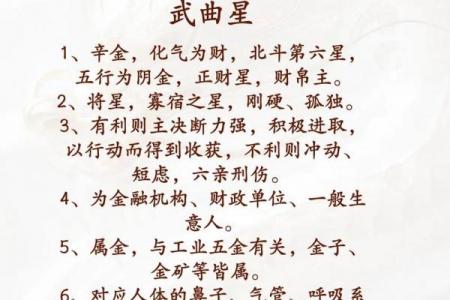 武曲星
1、辛金，化气为财，北斗第六星，
五行为阴金，正财星，财帛主。
2、将星，寡宿之星，刚硬、孤独。
3、有利则主决断力强，积极进取，
以行动而得到收获，不利则冲动、
短虑，六亲刑伤。
4、为金融机构、财政单位、一般生
意人。
5、属金，与工业五金有关，金子、
金矿等皆属。
6、对应人体的鼻子、气管、呼吸系